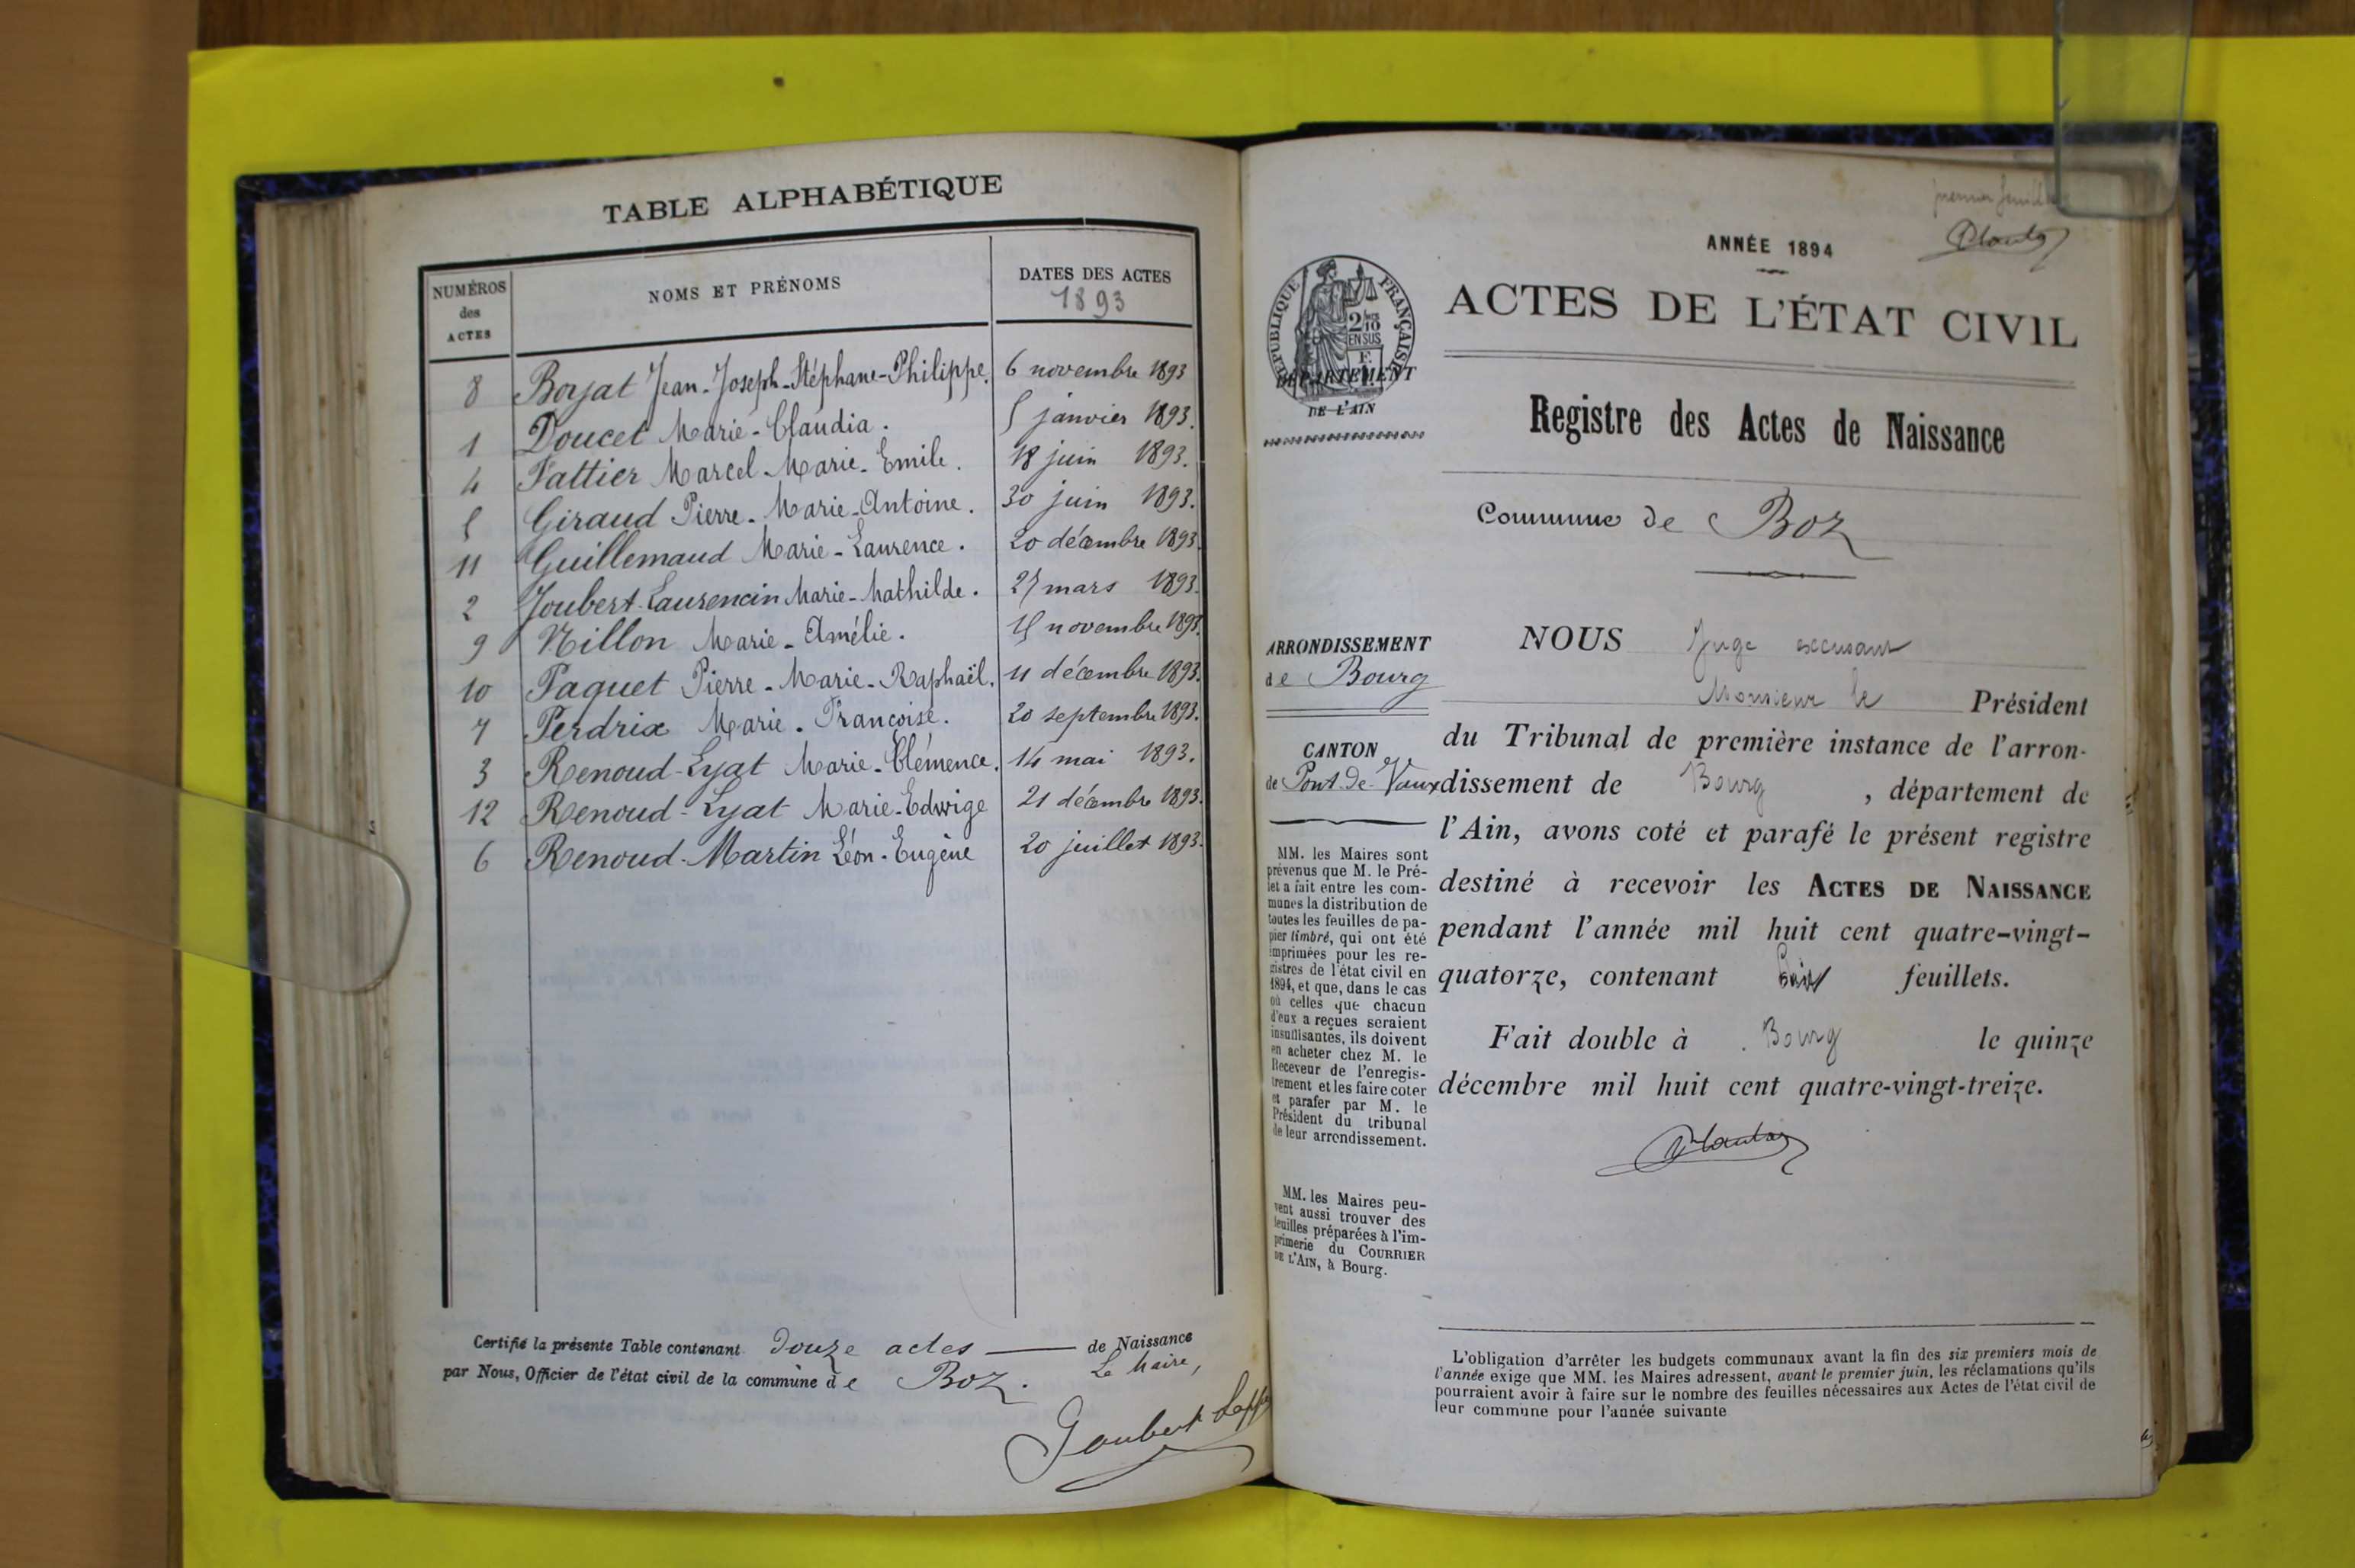 TABLE ALPHABÉTIQUE
NUMÉROS
des
ACTES
NOMS ET PRÉNOMS
DATES DES ACTES
1893
8 Boyat Jean-Joseph-Stéphane-Philippe. 6 novembre 1893
1 Doucet Marie-Claudia. 5 janvier 1893.
4 Fattier Marcel-Marie-Emile. 18 juin 1893.
5 Giraud Pierre-Marie-Antoine. 30 juin 1893.
11 Guillemaud Marie-Laurence. 20 décembre 1893.
2 Joubert-Laurencin Marie-Mathilde. 25 mars 1893.
9 Nillon Marie-Amélie. 15 novembre 1893.
10 Paquet Pierre-Marie-Raphaël. 11 décembre 1893.
7 Perdrix Marie-Françoise. 20 septembre 1893.
3 Renoud-Lyat Marie-Clémence. 14 mai 1893.
12 Renoud-Lyat Marie-Edwige 21 décembre 1893.
6 Renoud-Martin Léon-Eugène 20 juillet 1893.
Certifié la présente Table contenant douze actes de Naissance
par Nous, Officier de l'état civil de la commune de Boz.
Le Maire,
Joubert
premier feuillet
ANNÉE 1894
ACTES DE L'ÉTAT CIVIL
RÉPUBLIQUE FRANÇAISE
2/10
EN SUS
DÉPARTEMENT
DE L'AIN
Registre des Actes de Naissance
Commune de Boz
ARRONDISSEMENT
de Bourg
CANTON
de Pont-de-Vaux
MM. les Maires sont
prévenus que M. le Pré-
fet a fait entre les com-
munes la distribution de
toutes les feuilles de pa-
pier timbré, qui ont été
imprimées pour les re-
gistres de l'état civil en
1894, et que, dans le cas
où celles que chacun
d'eux a reçues seraient
insuffisantes, ils doivent
en acheter chez M. le
Receveur de l'enregis-
trement et les faire coter
et parafer par M. le
Président du tribunal
de leur arrondissement.
MM. les Maires peu-
vent aussi trouver des
feuilles préparées à l'im-
primerie du COURRIER
DE L'AIN, à Bourg.
NOUS Juge excusant
Monsieur le Président
du Tribunal de première instance de l'arron-
dissement de Bourg, département de
l'Ain, avons coté et parafé le présent registre
destiné à recevoir les ACTES DE NAISSANCE
pendant l'année mil huit cent quatre-vingt-
quatorze, contenant feuillets.
Fait double à Bourg le quinze
décembre mil huit cent quatre-vingt-treize.
L'obligation d'arrêter les budgets communaux avant la fin des six premiers mois de
l'année exige que MM. les Maires adressent, avant le premier juin, les réclamations qu'ils
pourraient avoir à faire sur le nombre des feuilles nécessaires aux Actes de l'état civil de
leur commune pour l'année suivante